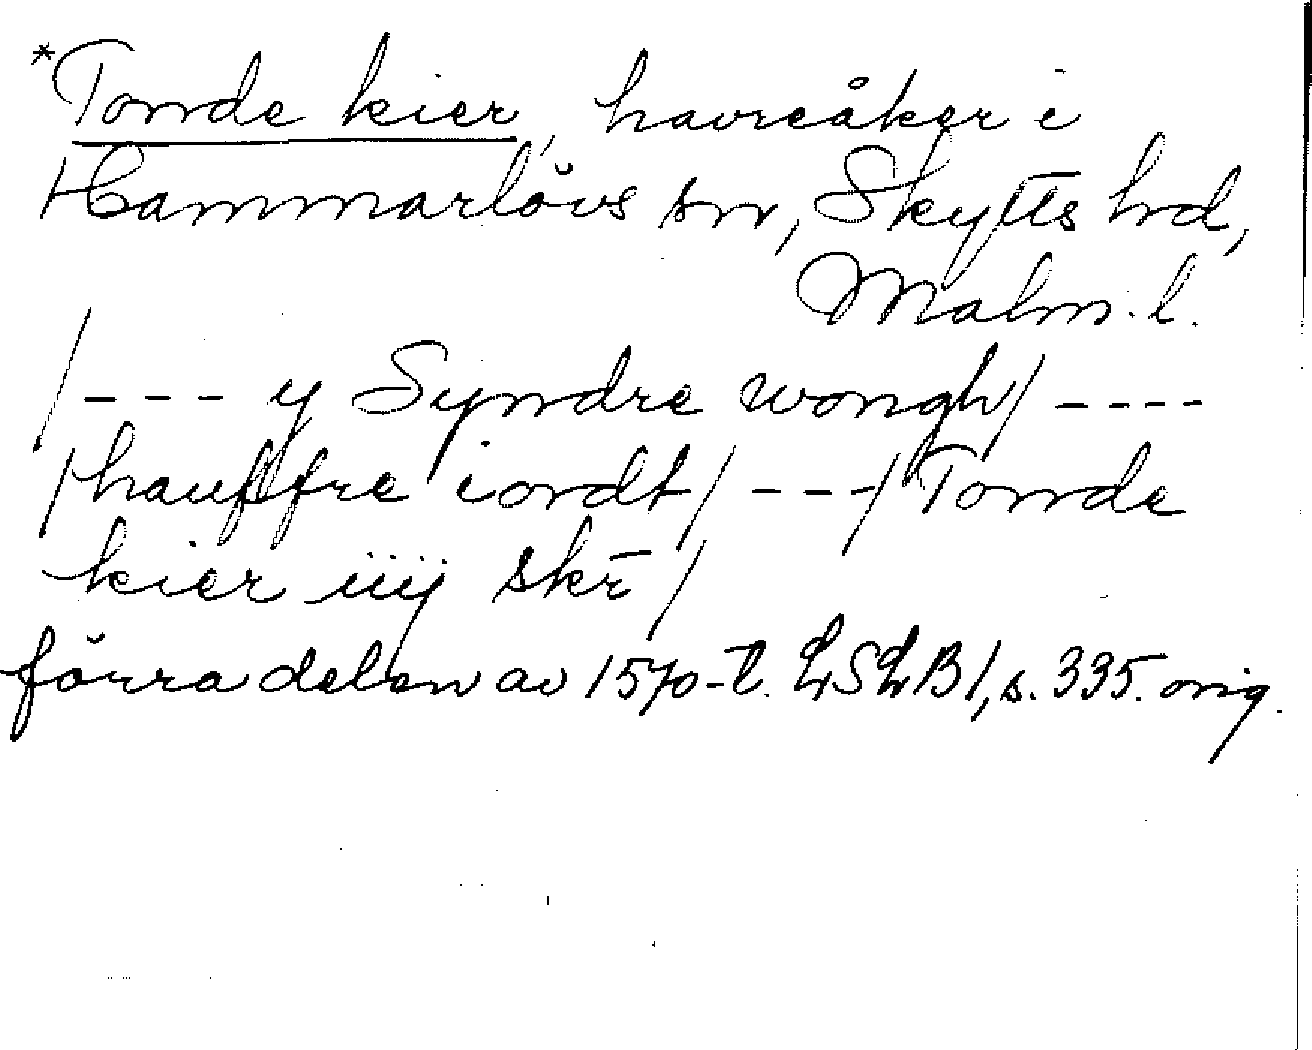 *Tonde kier, havreåker i
Hammarlövs sn, Skytts hd,
Malm. l.
/--- y Syndre wongh/ ----
/hauffre iordt/ ---/Tonde
kier iiij skr̄/
förra delen av 1570-t. LSLB1, s. 335. orig.